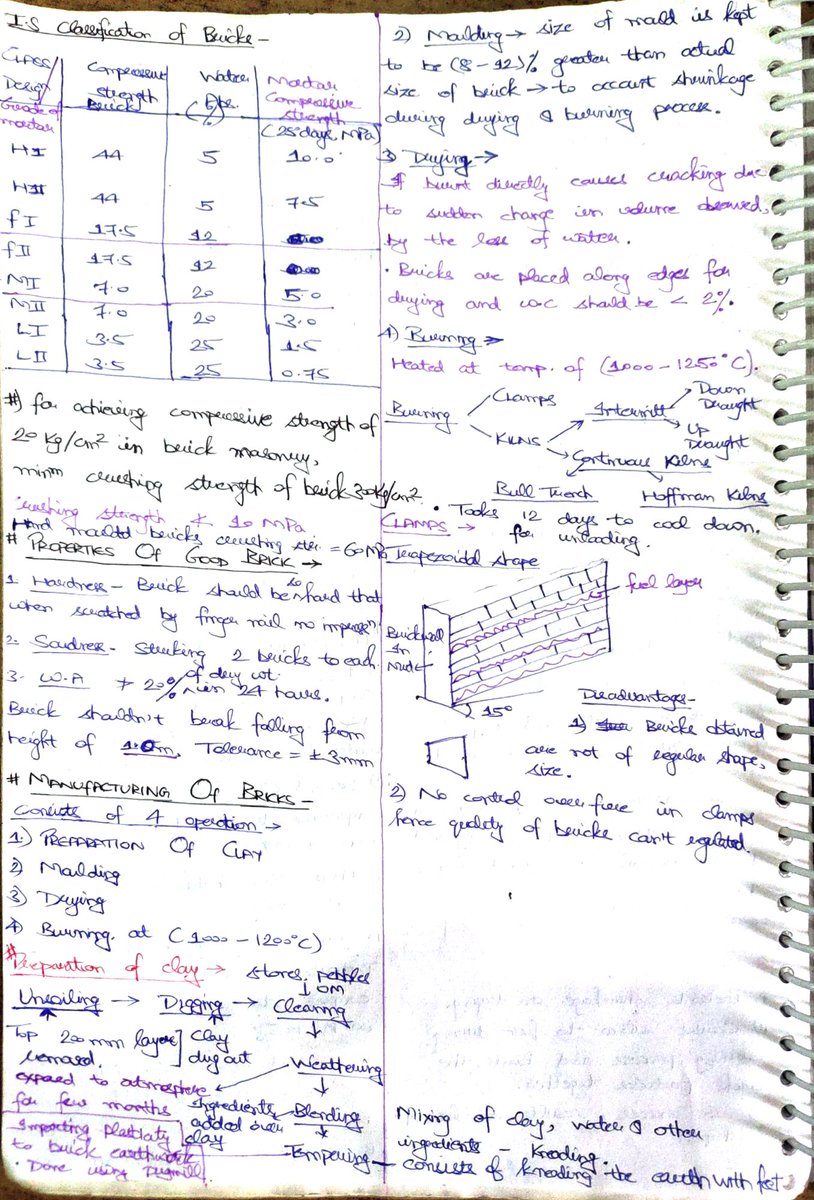 I.S Classification of Bricks -
Class Design / Grade of mortar | Compressive strength Brick | Water Abs. (%) | Mortar Compressive strength (28 days, MPa)
HI 44 5 10.0
HII 44 5 7.5
fI 17.5 12
fII 17.5 12
MI 7.0 20 5.0
MII 7.0 20 3.0
LI 3.5 25 1.5
LII 3.5 25 0.75
#) for achieving compressive strength of
20 kg/cm² in brick masonry,
minm crushing strength of brick 30kg/cm²
crushing strength ≮ 10 MPa
Hard mould bricks crushing str. = 60 MPa
# PROPERTIES OF GOOD BRICK →
1. Hardness - Brick should be so hard that
when scratched by finger nail no impressn
2. Soundness - Striking 2 bricks to each
3. W.A ≯ 20% of dry wt. in 24 hours.
Brick shouldn't break falling from
height of 1.0m. Tolerance = ±3mm
# MANUFACTURING OF BRICKS -
Consists of 4 operation →
1.) PREPARATION OF CLAY
2) Moulding
3) Drying
4) Burning. at (1000 - 1200°C)
# Preparation of clay → stones, pebbles
OM
Unsoiling → Digging → Cleaning
Top 200mm layer
removed.
Clay
dug out
Weathering
exposed to atmosphere
for few months
Ingredients
added over
clay
Blending
Imparting plasticity
to brick earth
Tempering - consists of kneading the earth with feet
• Done using pugmill
2) Moulding → size of mould is kept
to be (8 - 12)% greater than actual
size of brick → to account shrinkage
during drying & burning process.
3) Drying →
If burnt directly causes cracking due
to sudden change in volume
by the loss of water.
• Bricks are placed along edges for
drying and w.c should be < 2%.
4) Burning →
Heated at temp. of (1000 - 1250°C).
Burning
Clamps
KILNS
Intermitt
Down Draught
Up Draught
Continuous Kilns
Bull Trench
Hoffman Kilns
• Tooks 12 days to cool down.
for unloading.
CLAMPS →
Trapezoidal shape
fuel layer
Brickwall
In
Mud
15°
Disadvantages -
1) Bricks obtained
are not of regular shape,
size.
2) No control over fire in clamps
hence quality of bricks can't regulated.
Mixing of clay, water & other
ingredients - Kneading.